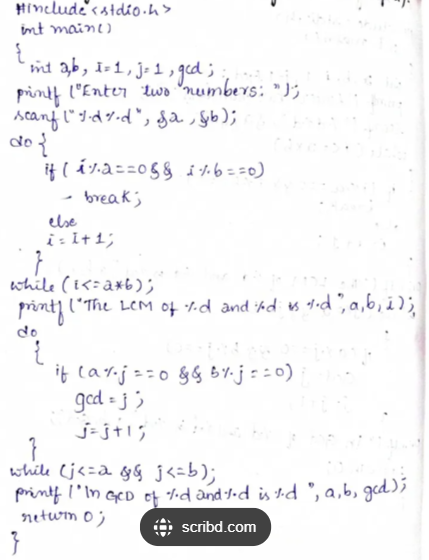 #include <stdio.h>
int main()
{
int a,b, I=1, j=1, gcd;
printf ("Enter two numbers: ");
scanf ("%d%d", &a, &b);
do {
if ( i%a==0 && i%b==0)
- break;
else
i=I+1;
}
while (i<=a*b);
printf ("The LCM of %d and %d is %d", a, b, i);
do
{
if (a%j==0 && b%j==0)
gcd=j;
j=j+1;
}
while (j<=a && j<=b);
printf ("\n GCD of %d and %d is %d ", a, b, gcd);
return 0;
}
scribd.com